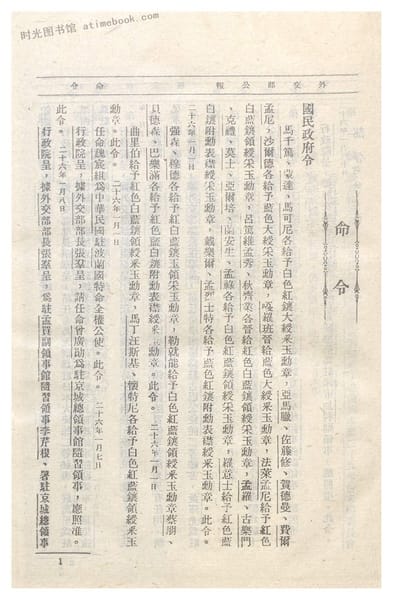 时光图书馆 atimebook.com
外交部公報 命令
命令
國民政府令
馬千篤、蒙達、馬可尼各給予白色紅鑲大綬采玉勳章，亞馬驪、佐藤修、賀德曼、費爾
孟尼，沙爾德各給予藍色大綬采玉勳章，戛羅班晉給藍色大綬采玉勳章，法萊孟尼給予紅色
白藍鑲領綬采玉勳章，呂篤維孟秀、秋齊業各晉給紅色白藍鑲領綬采玉勳章，孟羅、古樂門
、克禮、莫士、亞爾培、蘭安生、孟祿各給予白色紅藍鑲領綬采玉勳章，羅意士給予紅色藍
白鑲附勳表襟綬采玉勳章，戴樂爾、孟烈士特各給予藍色紅鑲附勳表襟綬采玉勳章。此令。
二十六年一月一日
强森、穆德各給予紅色白藍鑲領綬采玉勳章，勒就能給予白色紅藍鑲領綬采玉勳章蔡朋、
貝德森、巴樂滿各給予紅色藍白鑲附勳表襟綬采玉勳章。此令。 二十六年一月一日
曲里伯給予紅色白藍鑲領綬采玉勳章，馬丁汪斯基、懷特尼各給予白色紅藍鑲領綬采玉
勳章。此令。 二十六年一月一日
任命魏宸組爲中華民國駐波蘭國特命全權公使。此令。 二十六年一月七日
行政院呈，據外交部部長張羣呈，請任命曾廣勛爲駐京城總領事館隨習領事，應照准。
此令。 二十六年一月八日
行政院呈，據外交部部長張羣呈，爲駐孟買副領事館隨習領事李芹根、署駐京城總領事
1